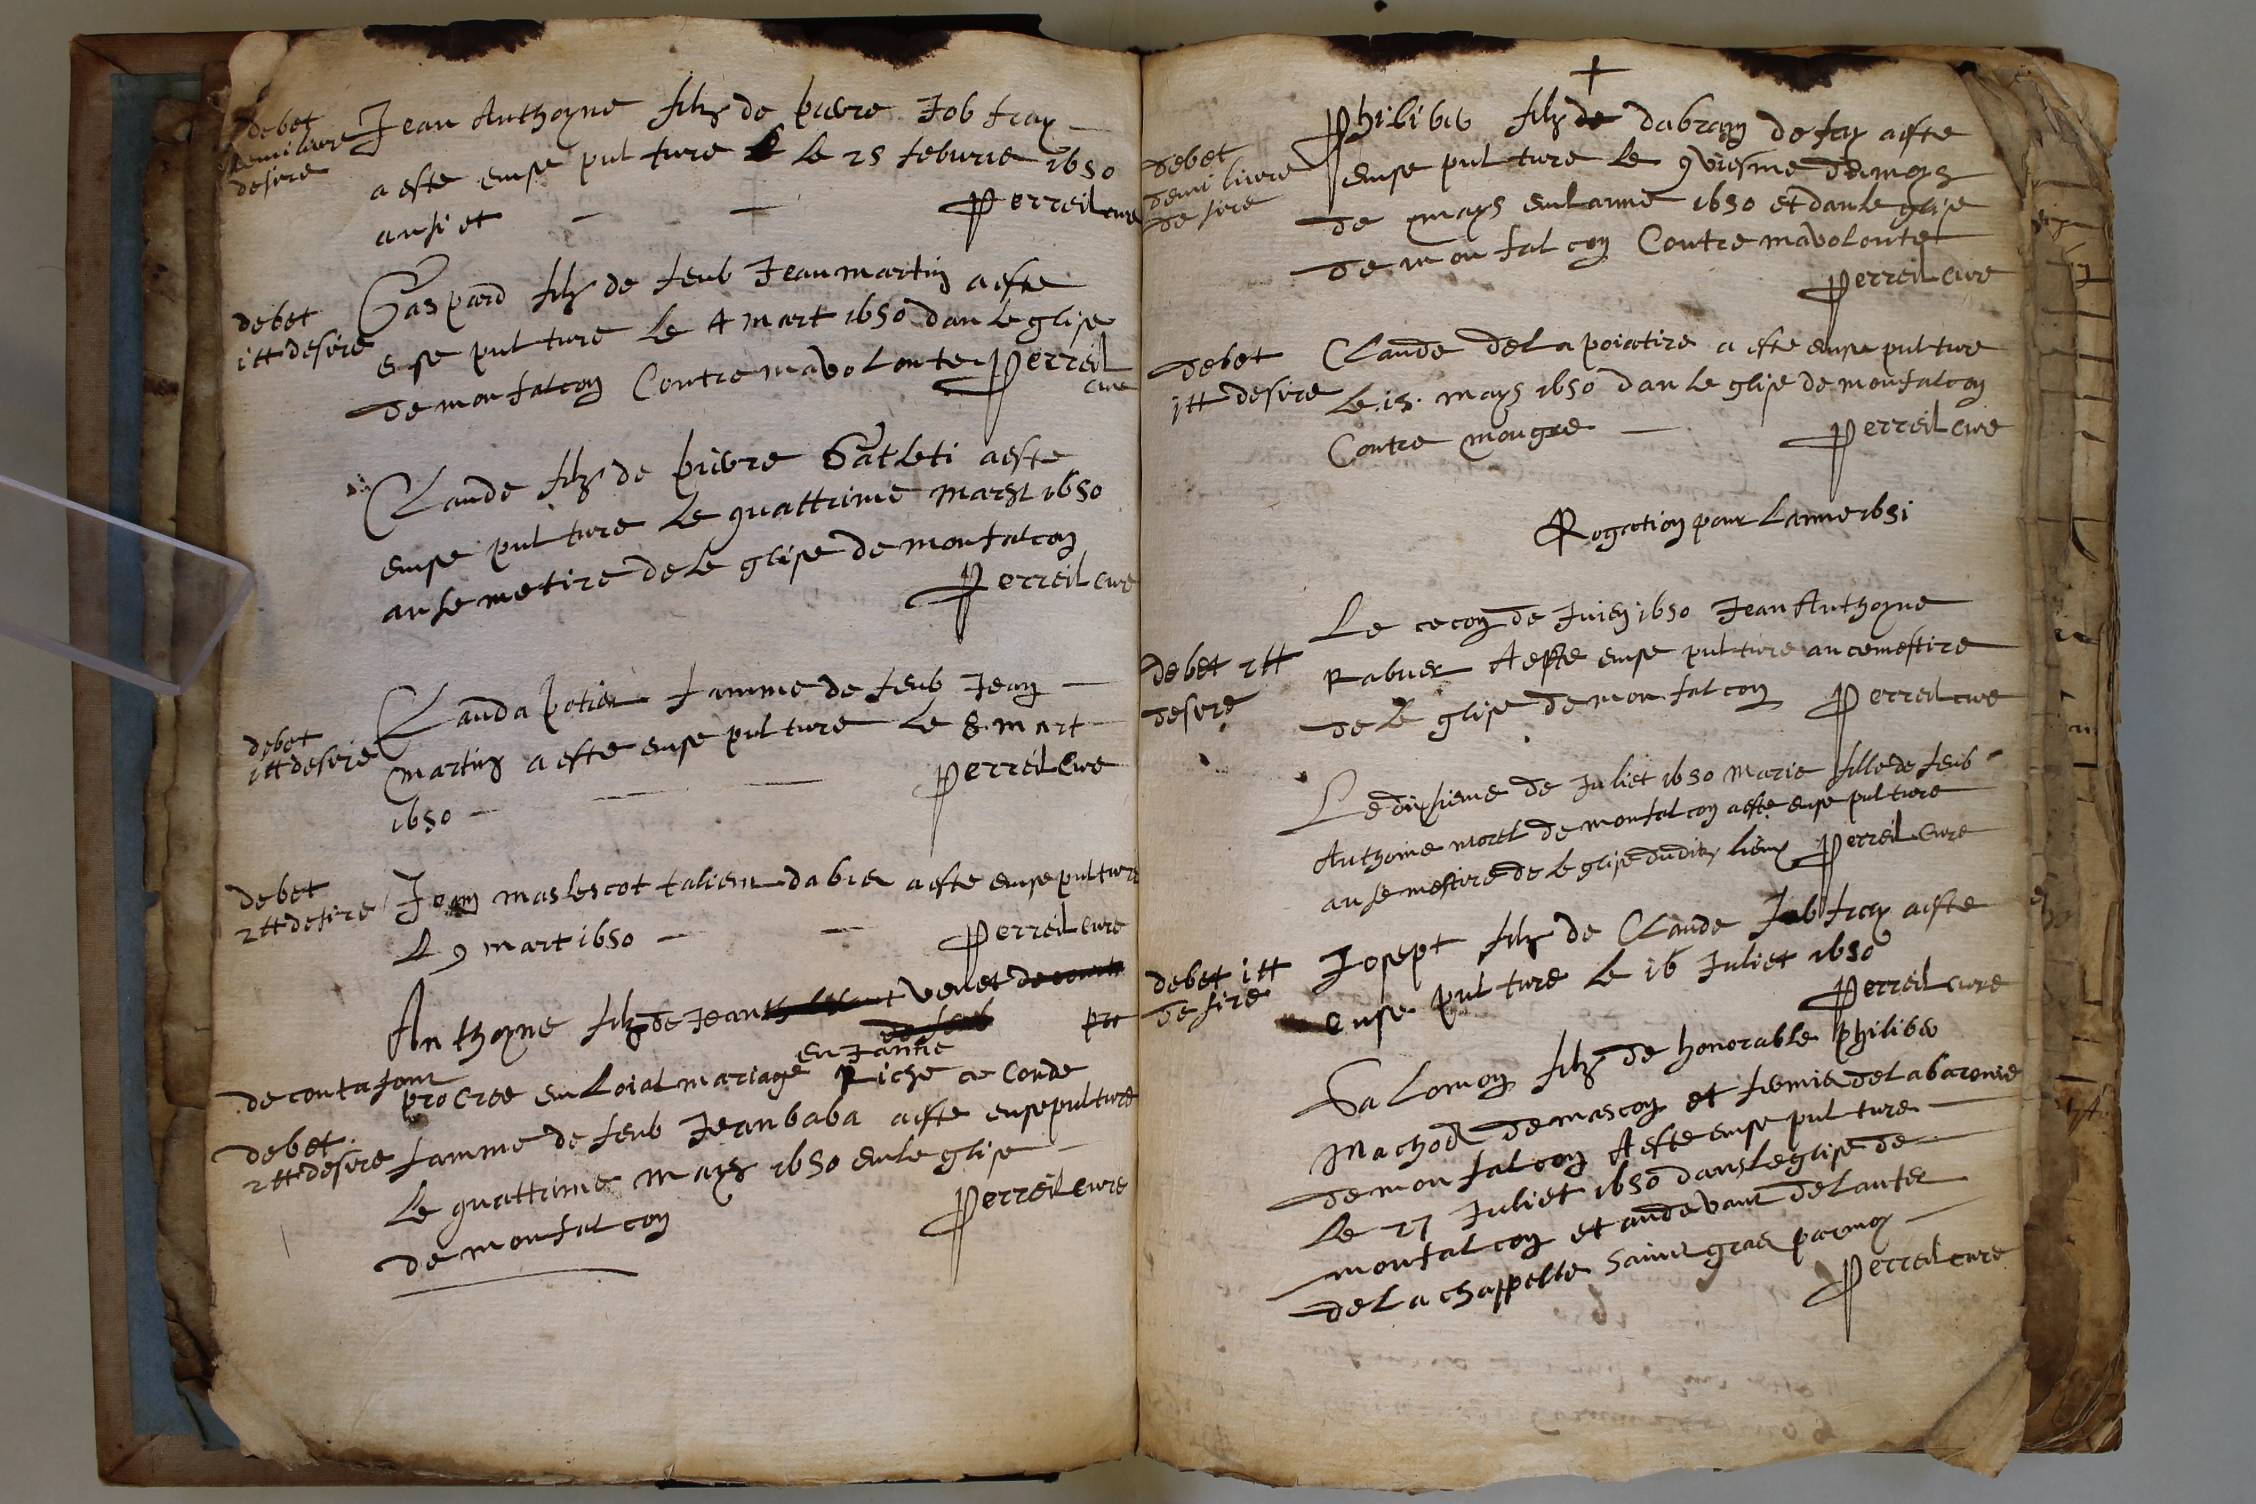 debet
demi livre
desire
Jean Anthoyne filz de pivre Jobfray
a este ensepulture le 25 feburie 1650
ansi et
Perreil cure
debet
1 tt desire
Gaspard filz de feub Jean martin a este
ensepulture Le 4 mart 1650 dan Leglise
de monfalcon Contre ma volonte Perreil
cure
Claude filz de pivre Gatleti a este
ensepulture Le quattrime mars 1650
au semetire de Le glise de monfalcon
Perreil cure
debet
1 tt desire
Clauda potier famme de feub Jean
martin a este ensepulture Le 8 mart
1650
Perreil Cure
debet
2 tt desire
Jean maslescot talien dabier a este ensepulture
Le 9 mart 1650
Perreil cure
Anthoyne filz de Jean venet
pro
de contafont
en Janne
procree en Loial mariage Riche ce Conde
debet
2 tt desire
famme de feub Jean baba a este ensepulture
Le quattrime mays 1650 en Le glise
de monfalcon
Perreil cure
+
debet
demi livre
de sire
Philiber filz de dabram de fay a este
ensepulture Le 9viesme de moys
de mays en Lanne 1650 et dan Le glise
de monfalcon Contre ma volonte
Perreil cure
debet
1 tt desire
Claude de La poiatire a este ensepulture
Le 15 mays 1650 dan Le glise de monfalcon
Contre mon gre
Perreil cure
Rogation pour Lanne 1651
debet 2 tt
desire
Le cecon de Juien 1650 Jean Anthoyne
Rabuer A este ensepulture au cemestire
de Le glise de monfalcon Perreil cure
Le dixsieme de Juliet 1650 marie fille de feub
Anthoine morel de monfalcon a este ensepulture
au semestire de Le glise dudit lieux Perreil Cure
debet 1 tt
de sire
Josept filz de Claude Jobfray a este
ensepulture Le 16 Juliet 1650
Perreil cure
Salomon filz de honorable philiber
Machod de mascon et fermier de La baronie
de monfalcon A este ensepulture
Le 27 Juliet 1650 dans Leglise de
monfalcon et au devant de Lautel
de La chappelle Saint gras par moy
Perreil cure